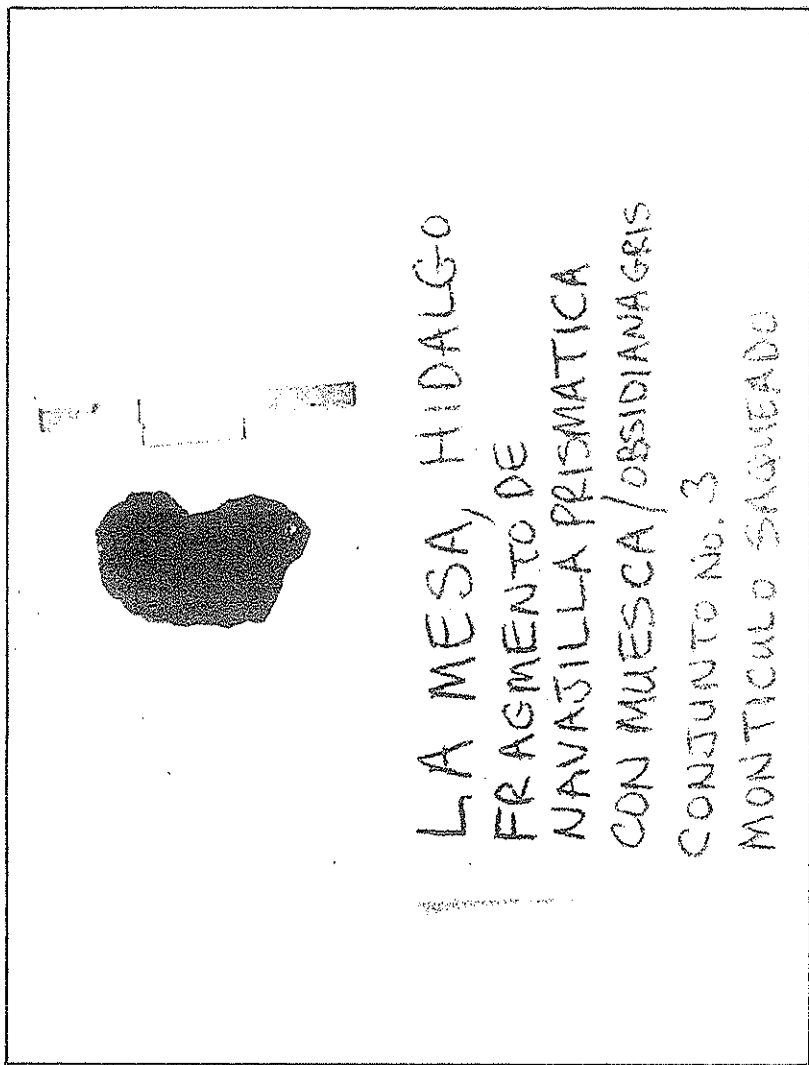 LA MESA, HIDALGO
FRAGMENTO DE
NAVAJILLA PRISMATICA
CON MUESCA / OBSIDIANA GRIS
CONJUNTO No. 3
MONTICULO SAQUEADO